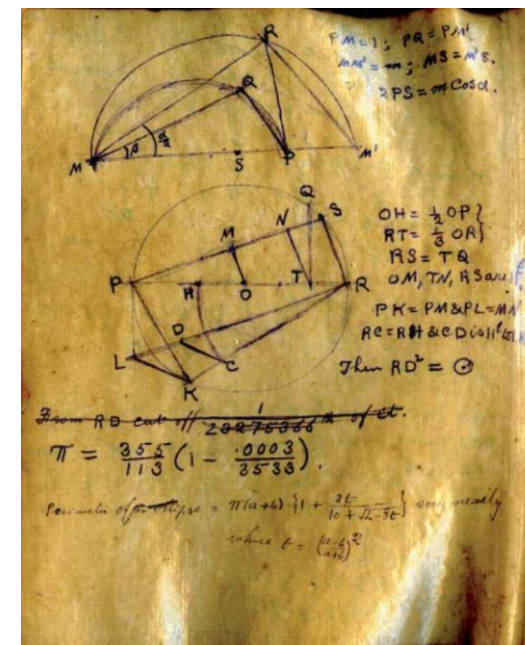 PM=1; PQ=PM'
MM'=m; MS=M'S.
2PS=m Cosα.
R
Q
M
β
S
P
M'
Q
S
N
M
P
H
O
T
R
D
L
C
K
OH = ½ OP}
RT = ⅓ OR}
RS = TQ
OM, TN, RS are
PK = PM & PL = MN
RC = RH & CD is ll
Then RD² = ⊙
From RD cut off 1/ th of it.
π = 355/113 (1 - .0003/3533).
Perimeter of ellipse = π(a+b) {1 + 3t/10+√4-3t} very nearly
where t = (a-b/a+b)²